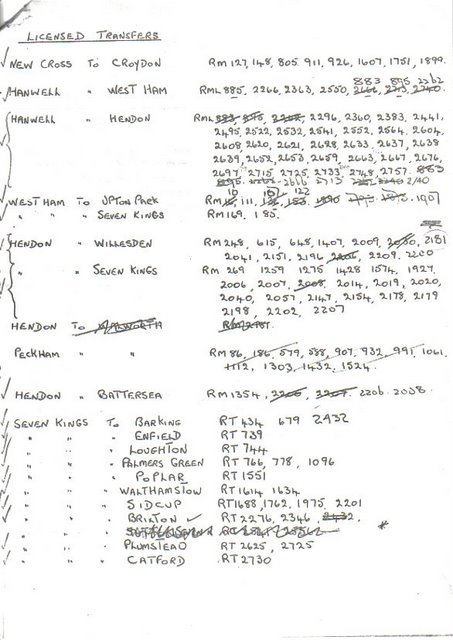 LICENSED TRANSFERS
NEW CROSS TO CROYDON RM 127, 148, 805, 911, 926, 1607, 1751, 1899.
883 895 2262
HANWELL " WEST HAM RML 885, 2266, 2363, 2550, 2666, 2713, 2740.
HANWELL " HENDON RML 883, 895, 2268, 2296, 2360, 2383, 2441,
2495, 2522, 2532, 2541, 2552, 2564, 2604,
2608, 2620, 2621, 2628, 2633, 2637, 2638
2639, 2652, 2653, 2659, 2663, 2667, 2676,
2697, 2715, 2725, 2733, 2748, 2757, 883
895, 2666 2713
WEST HAM TO UPTON PARK RM 111, 1907
" " SEVEN KINGS RM 169. 185.
HENDON " WILLESDEN RM 248, 615, 648, 1407, 2009, 2050, 2181
2041, 2151, 2196, 2206, 2209, 2200
" " SEVEN KINGS RM 269 1259 1275 1428 1574, 1927,
2006, 2007, 2008, 2014, 2019, 2020,
2040, 2057, 2147, 2154, 2178, 2179
2198, 2202, 2207
HENDON TO WALWORTH
PECKHAM " " RM 86, 186, 579, 588, 907, 932, 991, 1061,
1112, 1303, 1432, 1524
HENDON " BATTERSEA RM 1354, 2206, 2207, 2206 2008.
SEVEN KINGS TO BARKING RT 434 679 2432
" " " ENFIELD RT 739
" " " LOUGHTON RT 744
" " " PALMERS GREEN RT 766, 778, 1096
" " " POPLAR RT 1551
" " " WALTHAMSTOW RT 1614 1634
" " " SIDCUP RT 1688, 1762, 1975, 2201
" " " BRIXTON RT 2276, 2346, 2432.
" " "
" " " PLUMSTEAD RT 2625, 2725
" " " CATFORD RT 2730